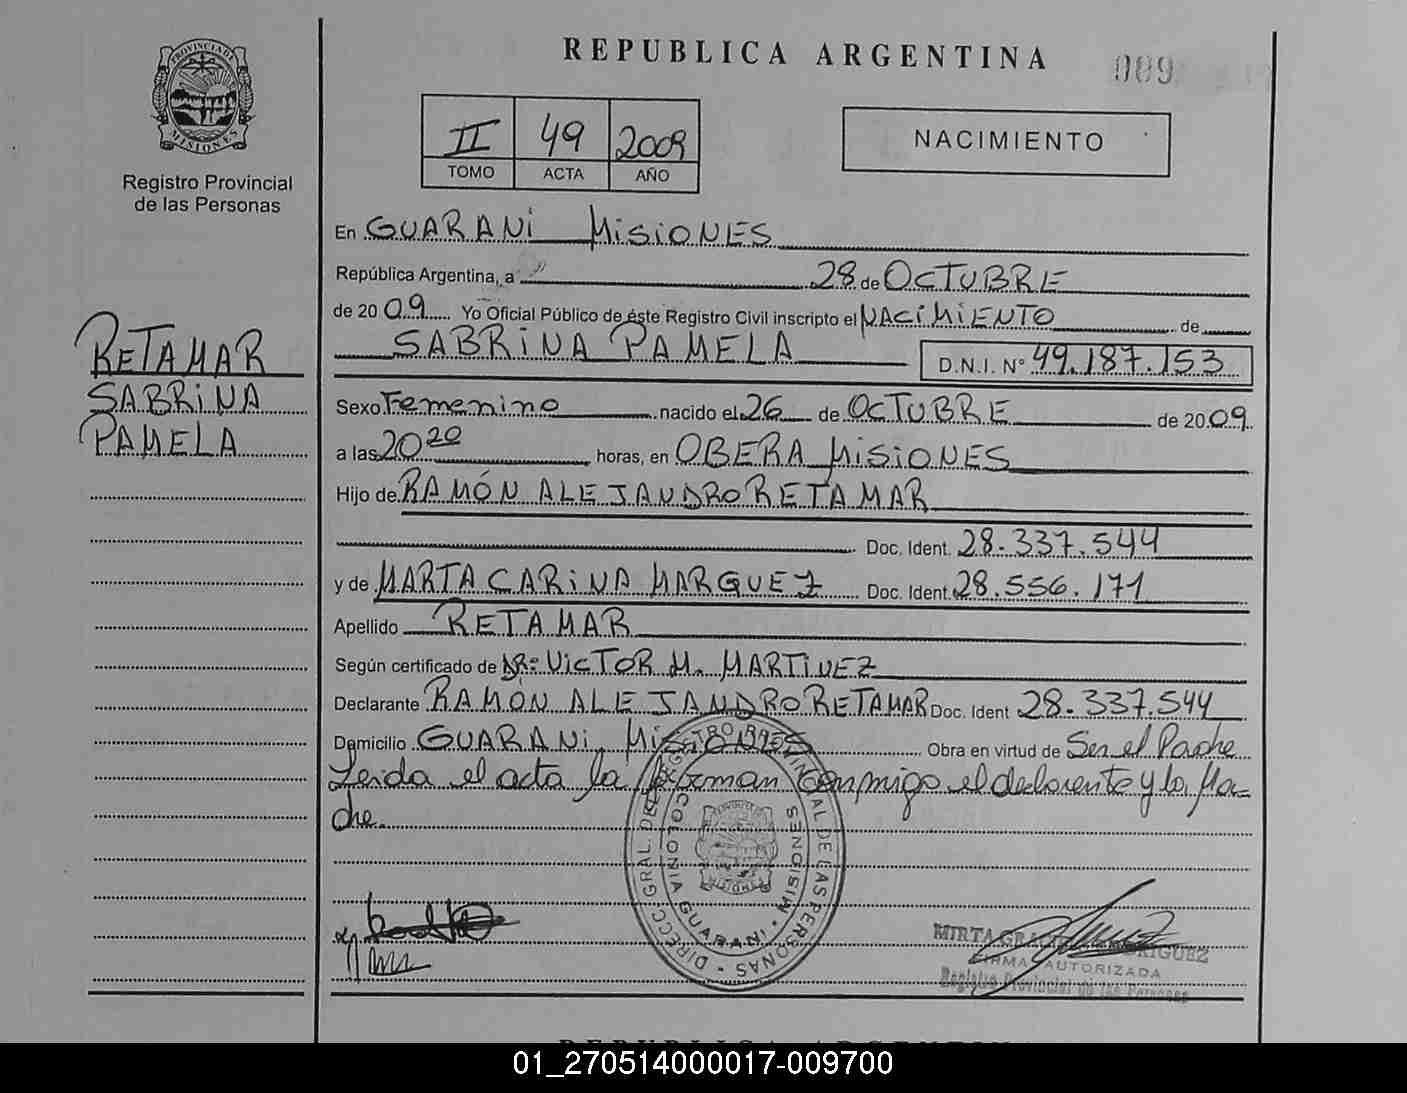 REPUBLICA ARGENTINA
089
PROVINCIA DE MISIONES
Registro Provincial
de las Personas
II 49 2009
TOMO ACTA AÑO
NACIMIENTO
RETAMAR
SABRINA
PAMELA
En GUARANI MISIONES
República Argentina, a 28 de OCTUBRE
de 2009 Yo Oficial Público de éste Registro Civil inscripto el NACIMIENTO de
SABRINA PAMELA D.N.I. N° 49.187.153
Sexo Femenino nacido el 26 de OCTUBRE de 2009
a las 20 20 horas, en OBERA MISIONES
Hijo de RAMÓN ALEJANDRO RETAMAR
Doc. Ident. 28.337.544
y de MARTA CARINA MARQUEZ Doc. Ident. 28.556.171
Apellido RETAMAR
Según certificado de DR: VICTOR M. MARTINEZ
Declarante RAMÓN ALEJANDRO RETAMAR Doc. Ident 28.337.544
Domicilio GUARANI, MISIONES Obra en virtud de Ser el Padre
Leida el acta la firman conmigo el declarente y la Ma-
dre.
DIRECC GRAL DEL REGISTRO PROVINCIAL DE LAS PERSONAS
COLONIA GUARANI - MISIONES
MISIONES
MIRTA RIGUEZ
FIRMA AUTORIZADA
Registro Provincial de las Personas
01_270514000017-009700